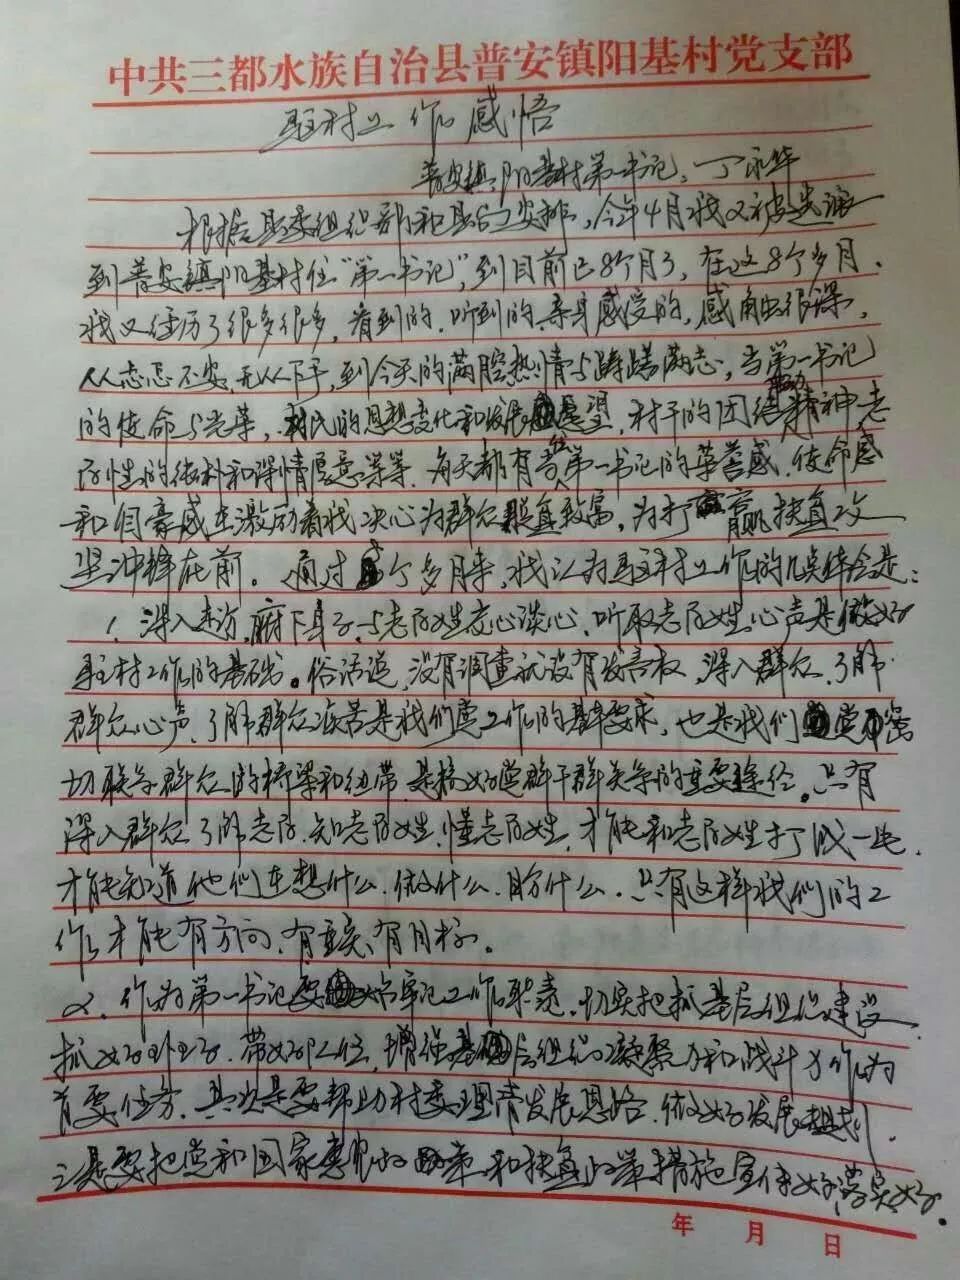 中共三都水族自治县普安镇阳基村党支部
驻村工作感悟
普安镇阳基村第一书记、丁永华
根据县委组织部和县的安排，今年4月我又被选派
到普安镇阳基村任“第一书记”，到目前已8个月了，在这8个多月，
我又经历了很多很多，看到的、听到的、亲身感受的，感触很深，
从忐忑不安、无从下手，到今天的满腔热情与踌躇满志，当第一书记
的使命与光荣，村民的思想变化和发展愿望，村干的团结精神老
百姓的纯朴和深情厚意等等，每天都有当然第一书记的荣誉感、使命感
和自豪感在激励着我决心为群众脱真致富，为打赢扶贫攻
坚冲锋在前。通过个多月来，我认为驻村工作的几点体会是：
1、深入走访，俯下身子，与老百姓走心谈心，听取老百姓心声是做好
驻村工作的基础。俗话说，没有调查就没有发言权，深入群众，了解
群众心声，了解群众疾苦是我们党工作的基本要求，也是我们党密
切联系群众的桥梁和纽带，是搞好党群干群关系的重要途径。只有
深入群众了解老百，知老百姓，懂老百姓，才能和老百姓打成一片，
才能知道他们在想什么，做什么，盼什么，只有这样我们的工
作才能有方向、有重点、有目标。
2、作为第一书记要牢记工作职责，切实把抓基层组织建设，
抓好班子、带好队伍，增强基层组织凝聚力和战斗力作为
首要任务，其次是要帮助村委理清发展思路，做好发展规划，
三是要把党和国家惠民的政策和扶贫政策措施宣传好落实好。
年 月 日